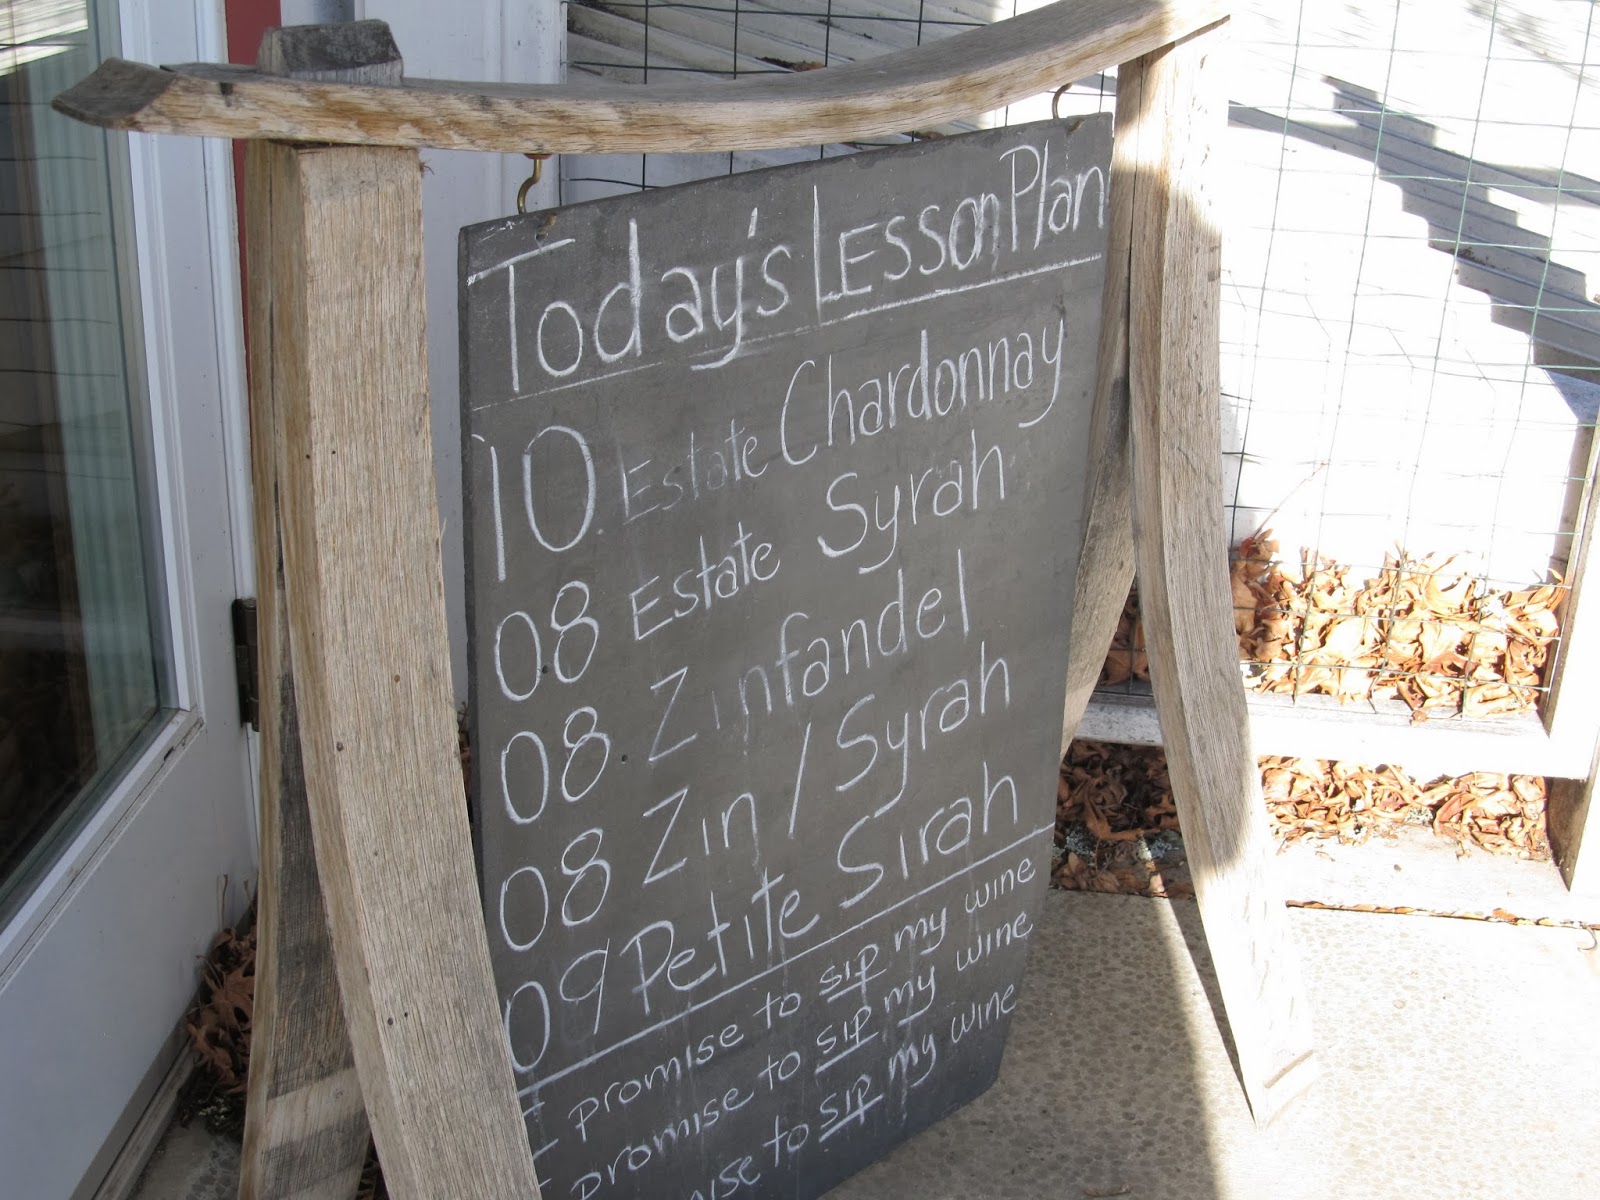 Today's Lesson Plan
10 Estate Chardonnay
08 Estate Syrah
08 Zinfandel
08 Zin / Syrah
09 Petite Sirah
I promise to sip my wine
promise to sip my wine
to sip my wine